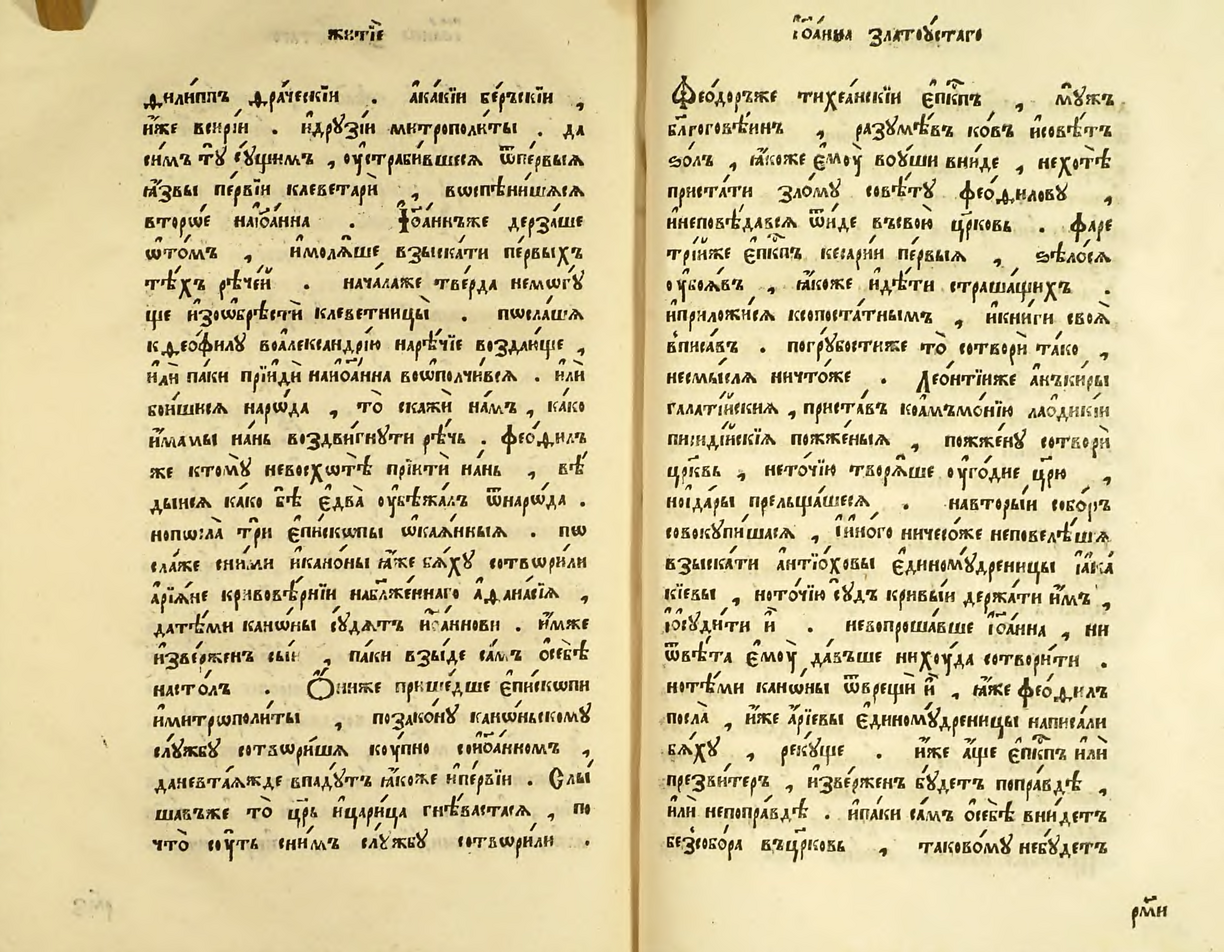 житїе
ѳилиппъ ѳра́ческїи . ака́кїи бе́ръскїи ,
и҆́же всирі́и . и҆друзі́и митрополи́ты . да
си́мъ тꙋ̀ сꙋ́щимъ , ᲂу҆стра́бившесѧ ѿпе́рвыѧ
ꙗ҆́звы пе́рвїи клеветарѝ , вѡспѣни́шѧсѧ
вторѡ́е наїѡ҃а́нна . І҆ѡ҃а́ннъже дерза́ше
ѡто́мъ , и҆молѧ̀ше взыска́ти пе́рвыхъ
тѣ́хъ рѣ́чей . нача́лаже тве́рда немѡгꙋ́
ще и҆зѡбрѣстѝ клеветницы̀ . пѡсла́шѧ
кѳеѡ́филꙋ воалекса́ндрїю нарѣ́чїе возда́юще ,
и҆лѝ па́ки прїидѝ наиѡ҃а́нна воѡполчи́всѧ . и҆лѝ
боѧ́шисѧ нарѡ́да , то̀ скажѝ на́мъ , ка́ко
и҆́мамы на́нь воздви́гнꙋти рѣ́чь . ѳео́филъ
же ктомꙋ̀ невосхотѣ̀ прїитѝ на́нь , вѣ́
дыисѧ ка́ко бѣ̀ є҆два̀ ᲂу҆бѣжа́лъ ѿнарѡ́да .
нопѡсла̀ трѝ є҆пи́скѡпы ѡ҆каѧ́нныѧ . пѡ
сла́же сни́ми и҆кано́ны ꙗ҆́же бѧ́хꙋ сотвѡри́ли
а҆рїѧ́не кривовѣ́рнїи набл҃же́ннаго а҆ѳана́сїѧ ,
датѣ́ми канѡ́ны сꙋ́дѧтъ иѡ҃а́ннови . и҆́мже
и҆зве́рженъ сы́и , па́ки взы́де са́мъ ѻ҆себѣ̀
насто́лъ . Ѻ҆ни́же прише́дше є҆пи́скопи
и҆митрѡполи́ты , позако́нꙋ канѡ́ньскомꙋ
слꙋ́жбꙋ сотвѡри́шѧ кꙋ́пно соиѡ҃а́нномъ ,
даневта́ѧжде впадꙋ́тъ ꙗ҆́коже и҆пе́рвїи . Слы́
шавъже то̀ цр҃ь и҆цари́ца гнѣ́вастасѧ , по
что̀ сꙋ́ть сни́мъ слꙋ́жбꙋ сотвѡри́ли .
І҆ѡ҃а́нна златоꙋ́стаго
Ѳео́доръже тихеа́нскїи є҆пк҃пъ , мꙋ́жъ
бл҃гоговѣ́инъ , разꙋмѣ́въ ко́въ и҆совѣ́тъ
ѕо́лъ , ꙗ҆́коже є҆мꙋ̀ воꙋ́ши вни́де , нехотѣ̀
приста́ти зло́мꙋ совѣ́тꙋ ѳео́филовꙋ ,
и҆неповѣ́давсѧ ѿи́де въсвою̀ цр҃ковь . фаре
трі́йже є҆пк҃пъ кесарі́и пе́рвыѧ , ѕѣлосѧ
ᲂу҆боѧ́въ , ꙗ҆́коже и҆дѣ́ти страша́щихъ .
и҆приложи́сѧ ксопоста́тнымъ , и҆кни́ги своѧ̀
вписа́въ . погрꙋ́бостиже то̀ сотворѝ та́ко ,
несмы́слѧ ничто́же . Лео́нтїиже а҆нъки́ры
гала́тїйскиѧ , приста́въ коамъмо́нїю лаоди́кїи
писиді́йскїѧ пожже́ныѧ , пожже́нꙋ сотворѝ
цр҃квь , нето́чїю творѧ́ше ᲂу҆го́дне цр҃ю ,
ноида́ры прельща́шесѧ . навторы́и собо́ръ
совокꙋпи́шасѧ , и҆ино́го ничесо́же неповелѣ́шѧ
взыска́ти а҆нтїо́ховы є҆диномꙋ́дреницы і҆ака
кі́евы , ното́чїю сꙋ́дъ кривы́и держа́ти и҆́мъ ,
ѻ҆сꙋди́ти и҆̀ . невопроша́вше і҆ѡ҃а́нна , ни
ѿвѣ́та є҆мꙋ̀ да́въше нихꙋ́да сотвори́ти .
нотѣ́ми канѡ́ны ѿврещѝ и҆̀ , ꙗ҆́же ѳео́филъ
посла̀ , и҆́же а҆рі́евы є҆диномꙋ́дреницы написа́ли
бѧ́хꙋ , рекꙋ́ще . и҆́же а҆́ще є҆пк҃пъ и҆лѝ
презви́теръ , и҆зве́рженъ бꙋ́детъ попра́вдѣ ,
и҆лѝ непопра́вдѣ . и҆па́ки са́мъ ѻ҆себѣ̀ вни́детъ
безсобо́ра въцр҃ковь , таково́мꙋ небꙋ́детъ
рм҃и